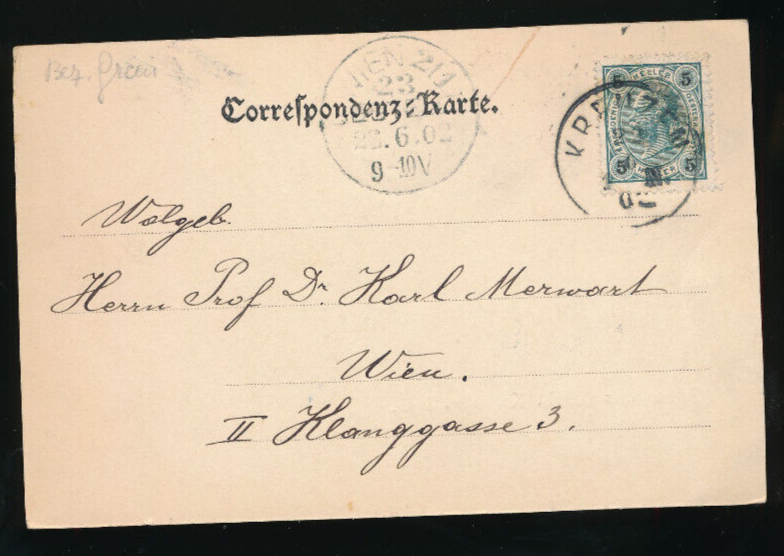 Bez.
WIEN 2/1
23
Correspondenz-Karte.
23.6.02
9-10V
5 HELLER 5
5 5
KREMS
02
Wolgeb.
Herrn Prof Dr. Karl Merwart
Wien.
II Klanggasse 3.